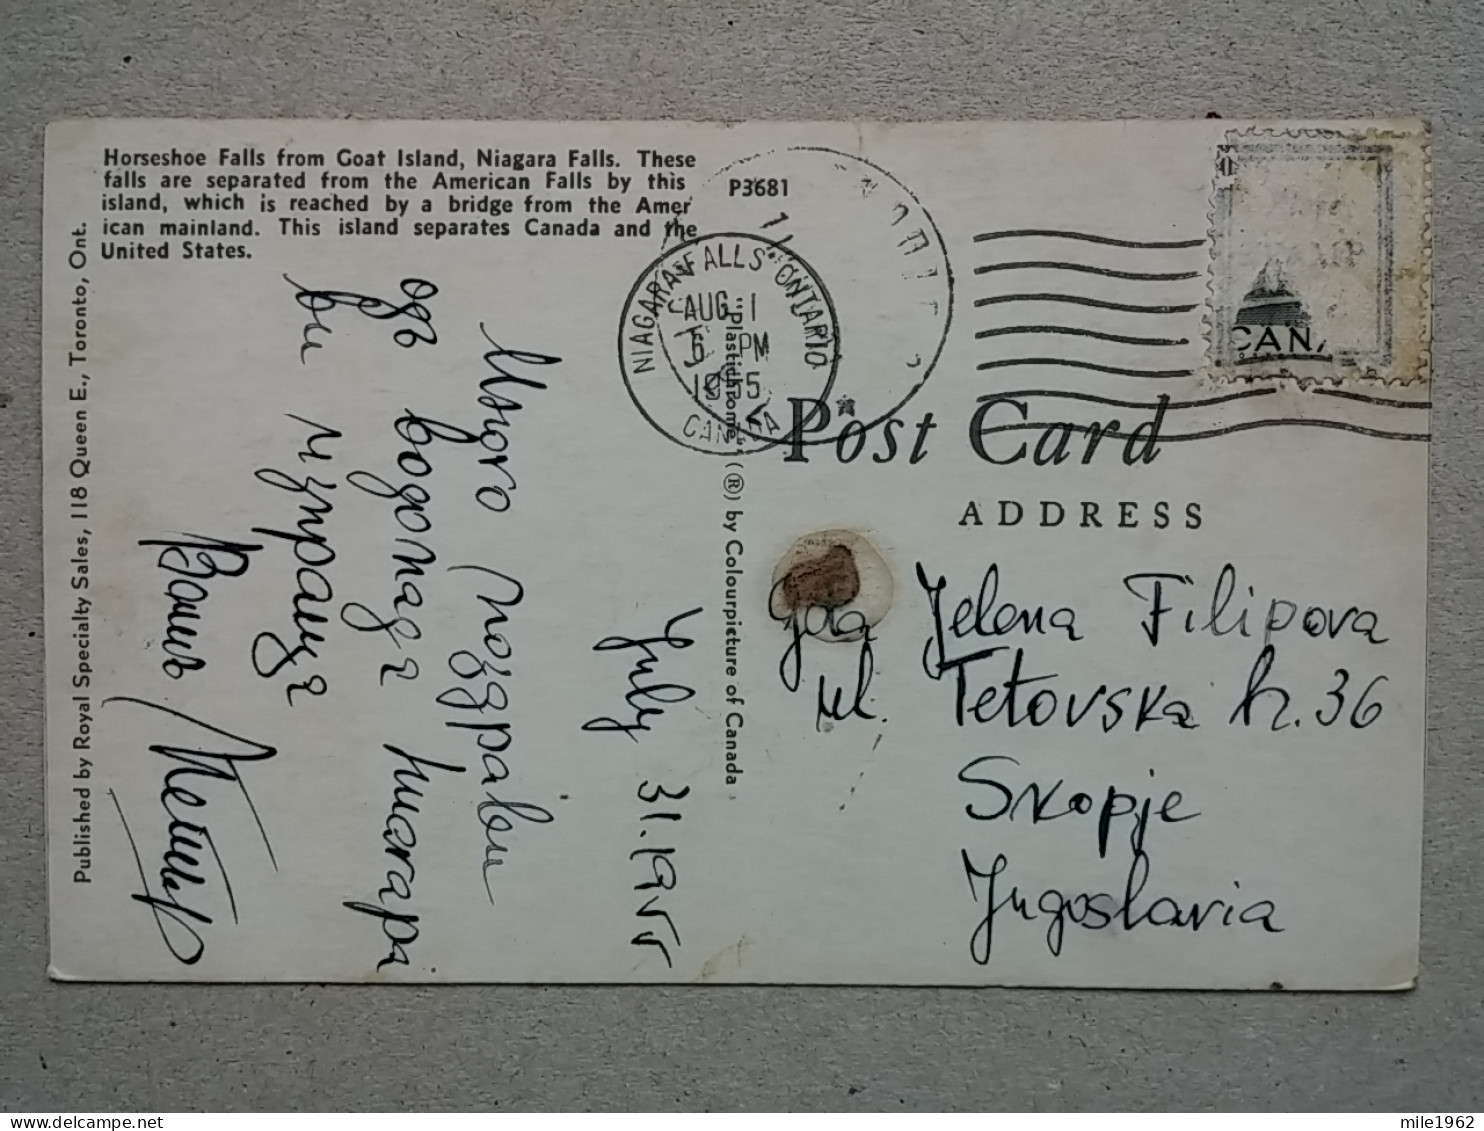 Horseshoe Falls from Goat Island, Niagara Falls. These
falls are separated from the American Falls by this
island, which is reached by a bridge from the Amer
ican mainland. This island separates Canada and the
United States.
P3681
Published by Royal Specialty Sales, 118 Queen E., Toronto, Ont.
"Plastichrome" (®) by Colourpicture of Canada
NIAGARA FALLS ONTARIO
AUG 1
PM
CANADA
CANA
Post Card
ADDRESS
July 31. 1955
Много поздрави
одъ водопадя Ниагара
ви
Вашъ
Gđa Jelena Filipova
ul. Tetovska br. 36
Skopje
Jugoslavia
mile1962